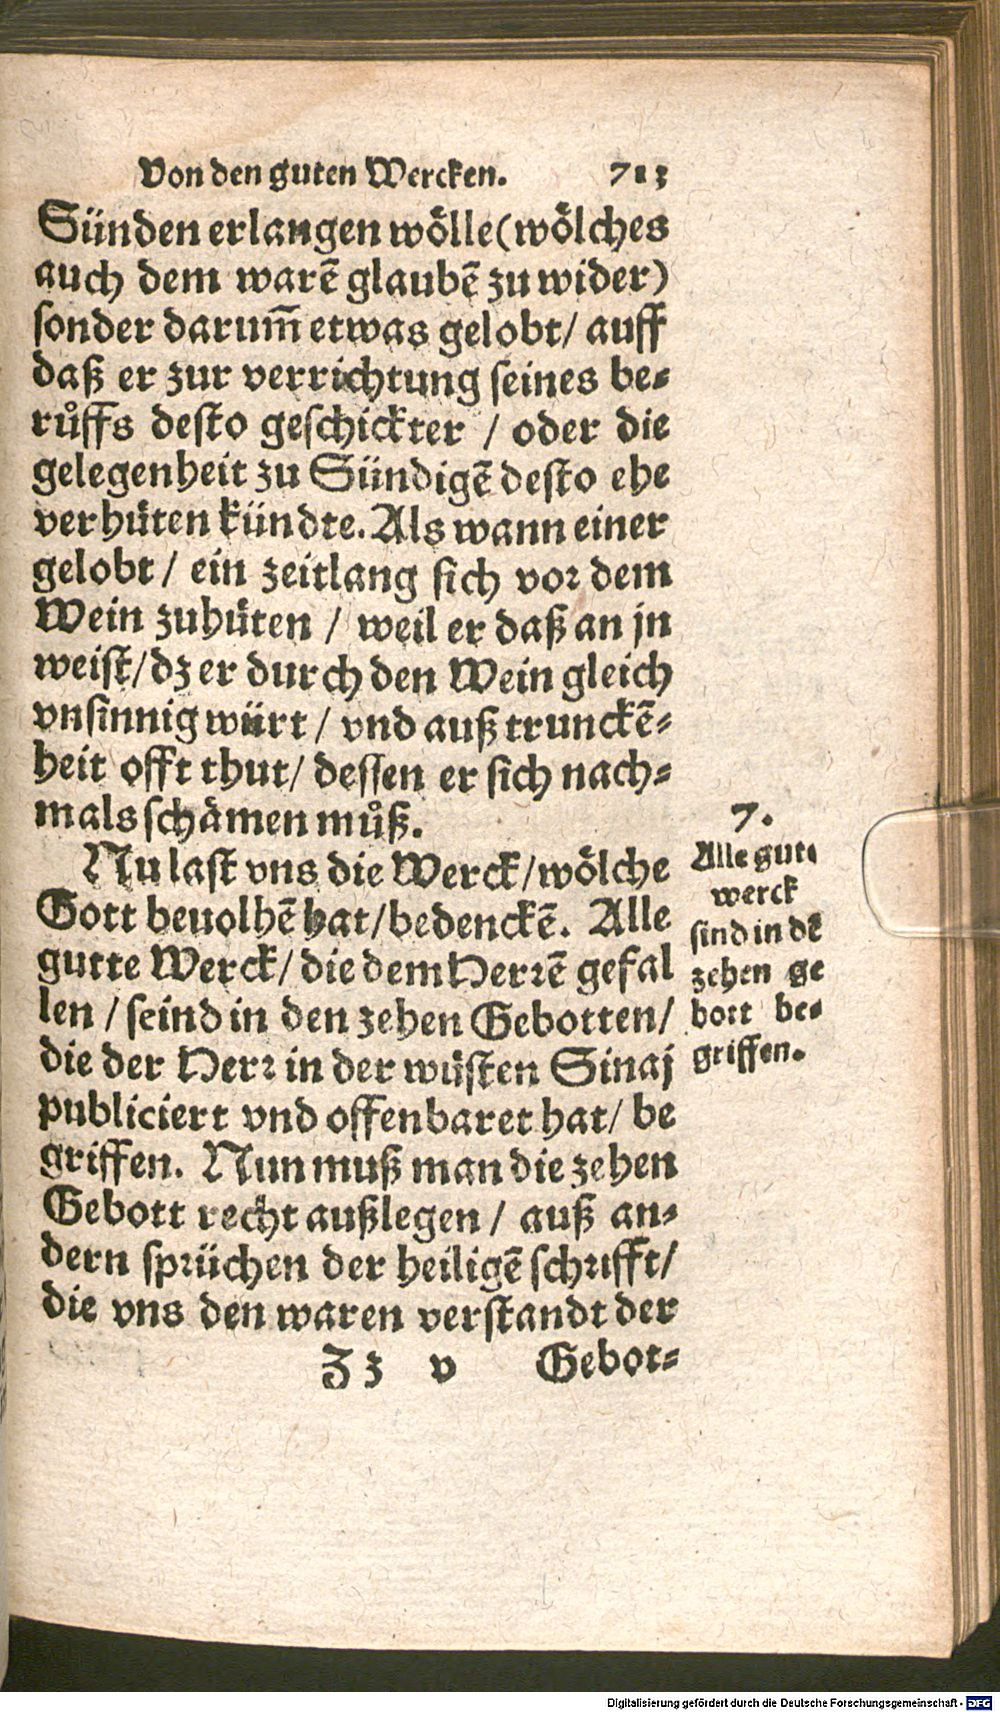 Von den guten Wercken. 713
Sünden erlangen woͤlle (woͤlches
auch dem warē glaubē zu wider)
sonder darum̄ etwas gelobt / auff
daß er zur verrichtung seines be-
ruͦffs desto geschickter / oder die
gelegenheit zu Sündigē desto ehe
verhuͤten kündte. Als wann einer
gelobt / ein zeitlang sich vor dem
Wein zuhuͤten / weil er daß an jn
weist / dz er durch den Wein gleich
vnsinnig würt / vnd auß trunckē-
heit offt thut / dessen er sich nach-
mals schaͤmen muͦß.
Nu last vns die Werck / woͤlche
Gott beuolhē hat / bedenckē. Alle
gutte Werck / die dem Herrē gefal
len / seind in den zehen Gebotten /
die der Herr in der wuͤsten Sinaj
publiciert vnd offenbaret hat / be
griffen. Nun muß man die zehen
Gebott recht außlegen / auß an-
dern sprüchen der heiligē schrifft /
die vns den waren verstandt der
Zz v Gebot-
7.
Alle gute
werck
sind in dē
zehen ge
bott be-
griffen.
Digitalisierung gefördert durch die Deutsche Forschungsgemeinschaft - DFG